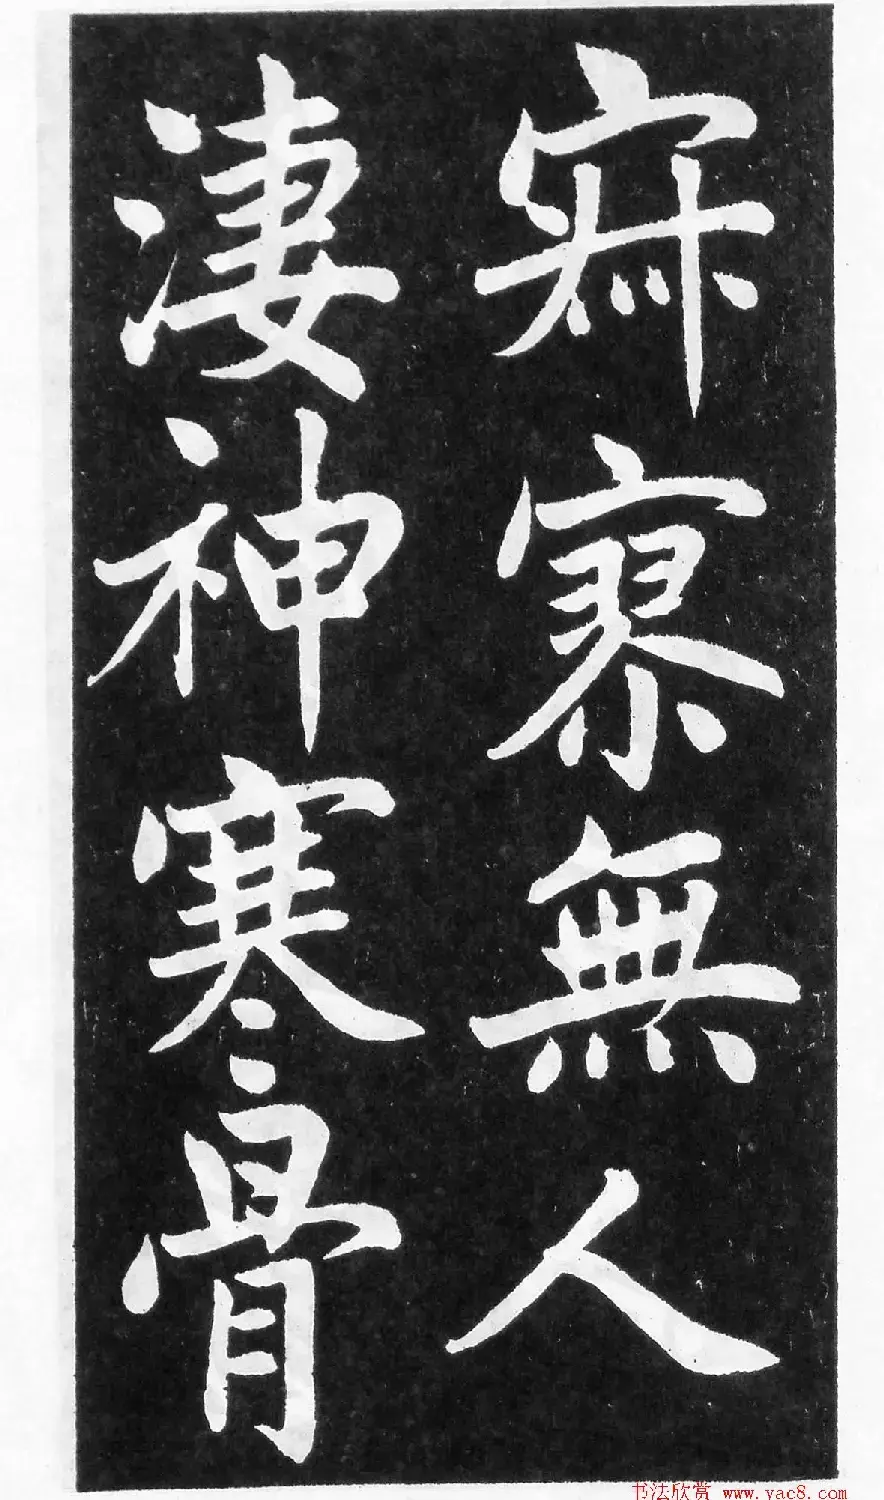 寂寥無人
淒神寒骨
书法欣赏 www.yac8.com